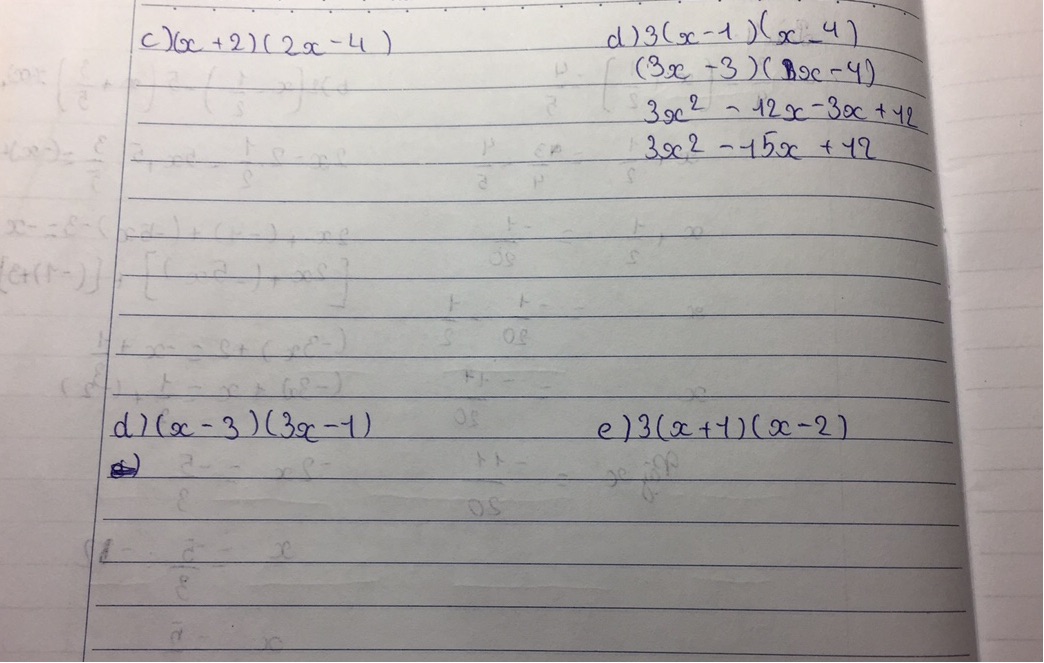 c)(x+2)(2x-4)
d)3(x-1)(x-4)
(3x-3)(x-4)
3x² - 12x-3x+12
3x² -15x +12
d)(x-3)(3x-1)
e)3(x+1)(x-2)